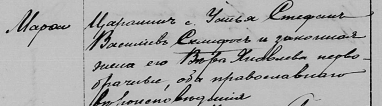 Мария
Царанин с. Устья Стефан
Васильев Склифос и законная
жена его Вера Яковлева перво-
брачные, оба православнаго
вероисповедания